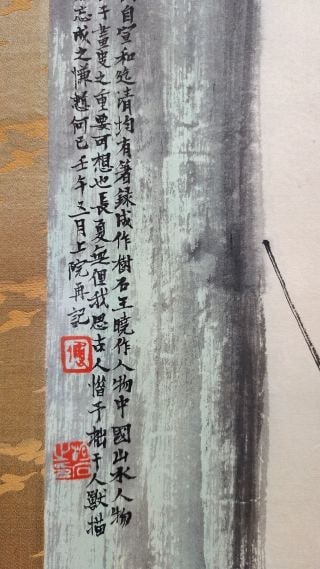 自宣和迄清均有著錄成作樹石王曉作人物中國山水人物
于畫史之重要可想也長夏無但我思古人惜予拙于人獸描
忘成之慊題何已壬午五月上院再記